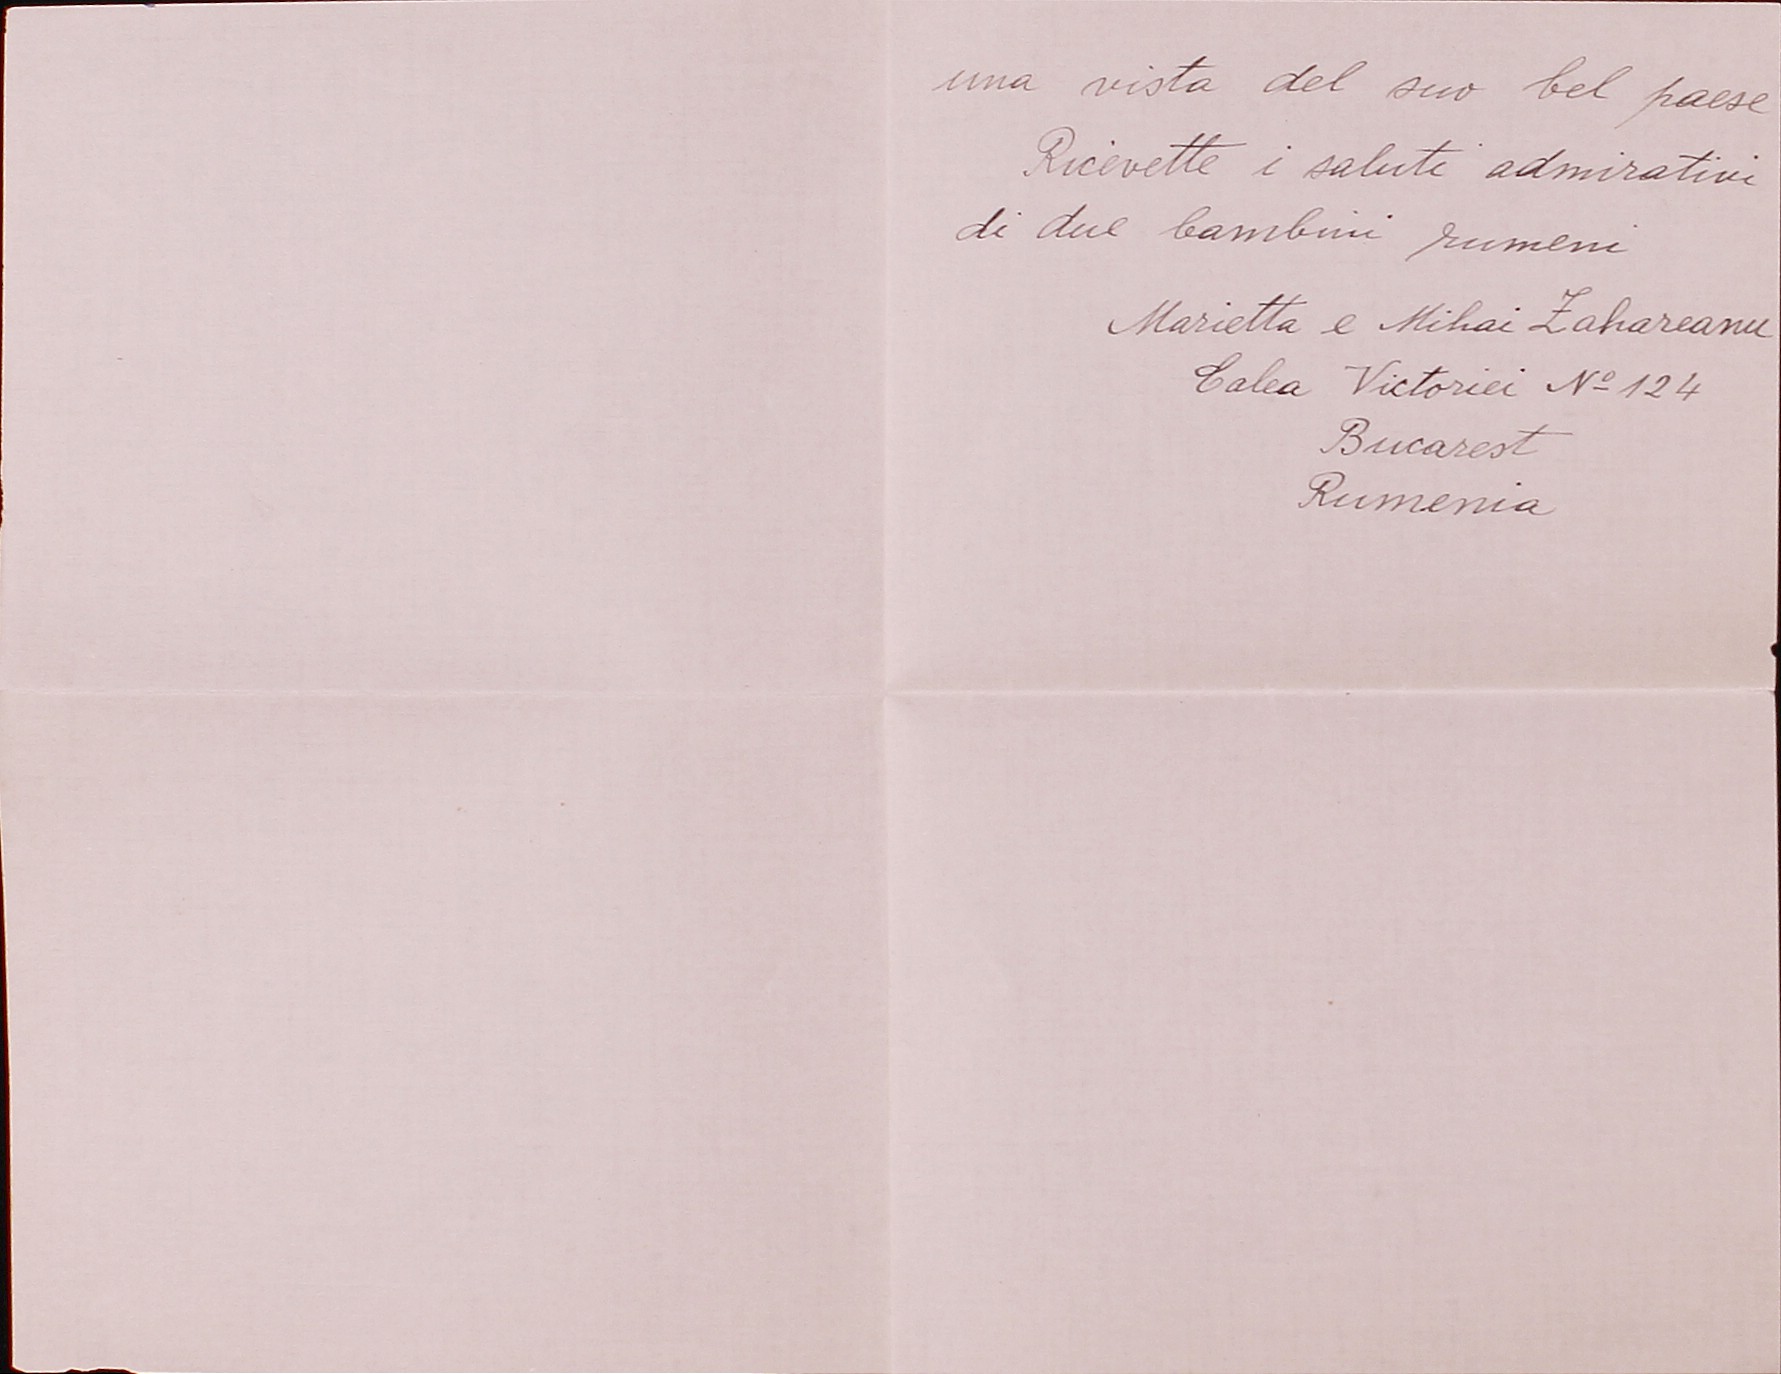 una vista del suo bel paese
Ricevette i saluti admirativi
di due bambini rumeni
Marietta e Mihai Zahareanu
Calea Victoriei Nº 124
Bucarest
Rumenia